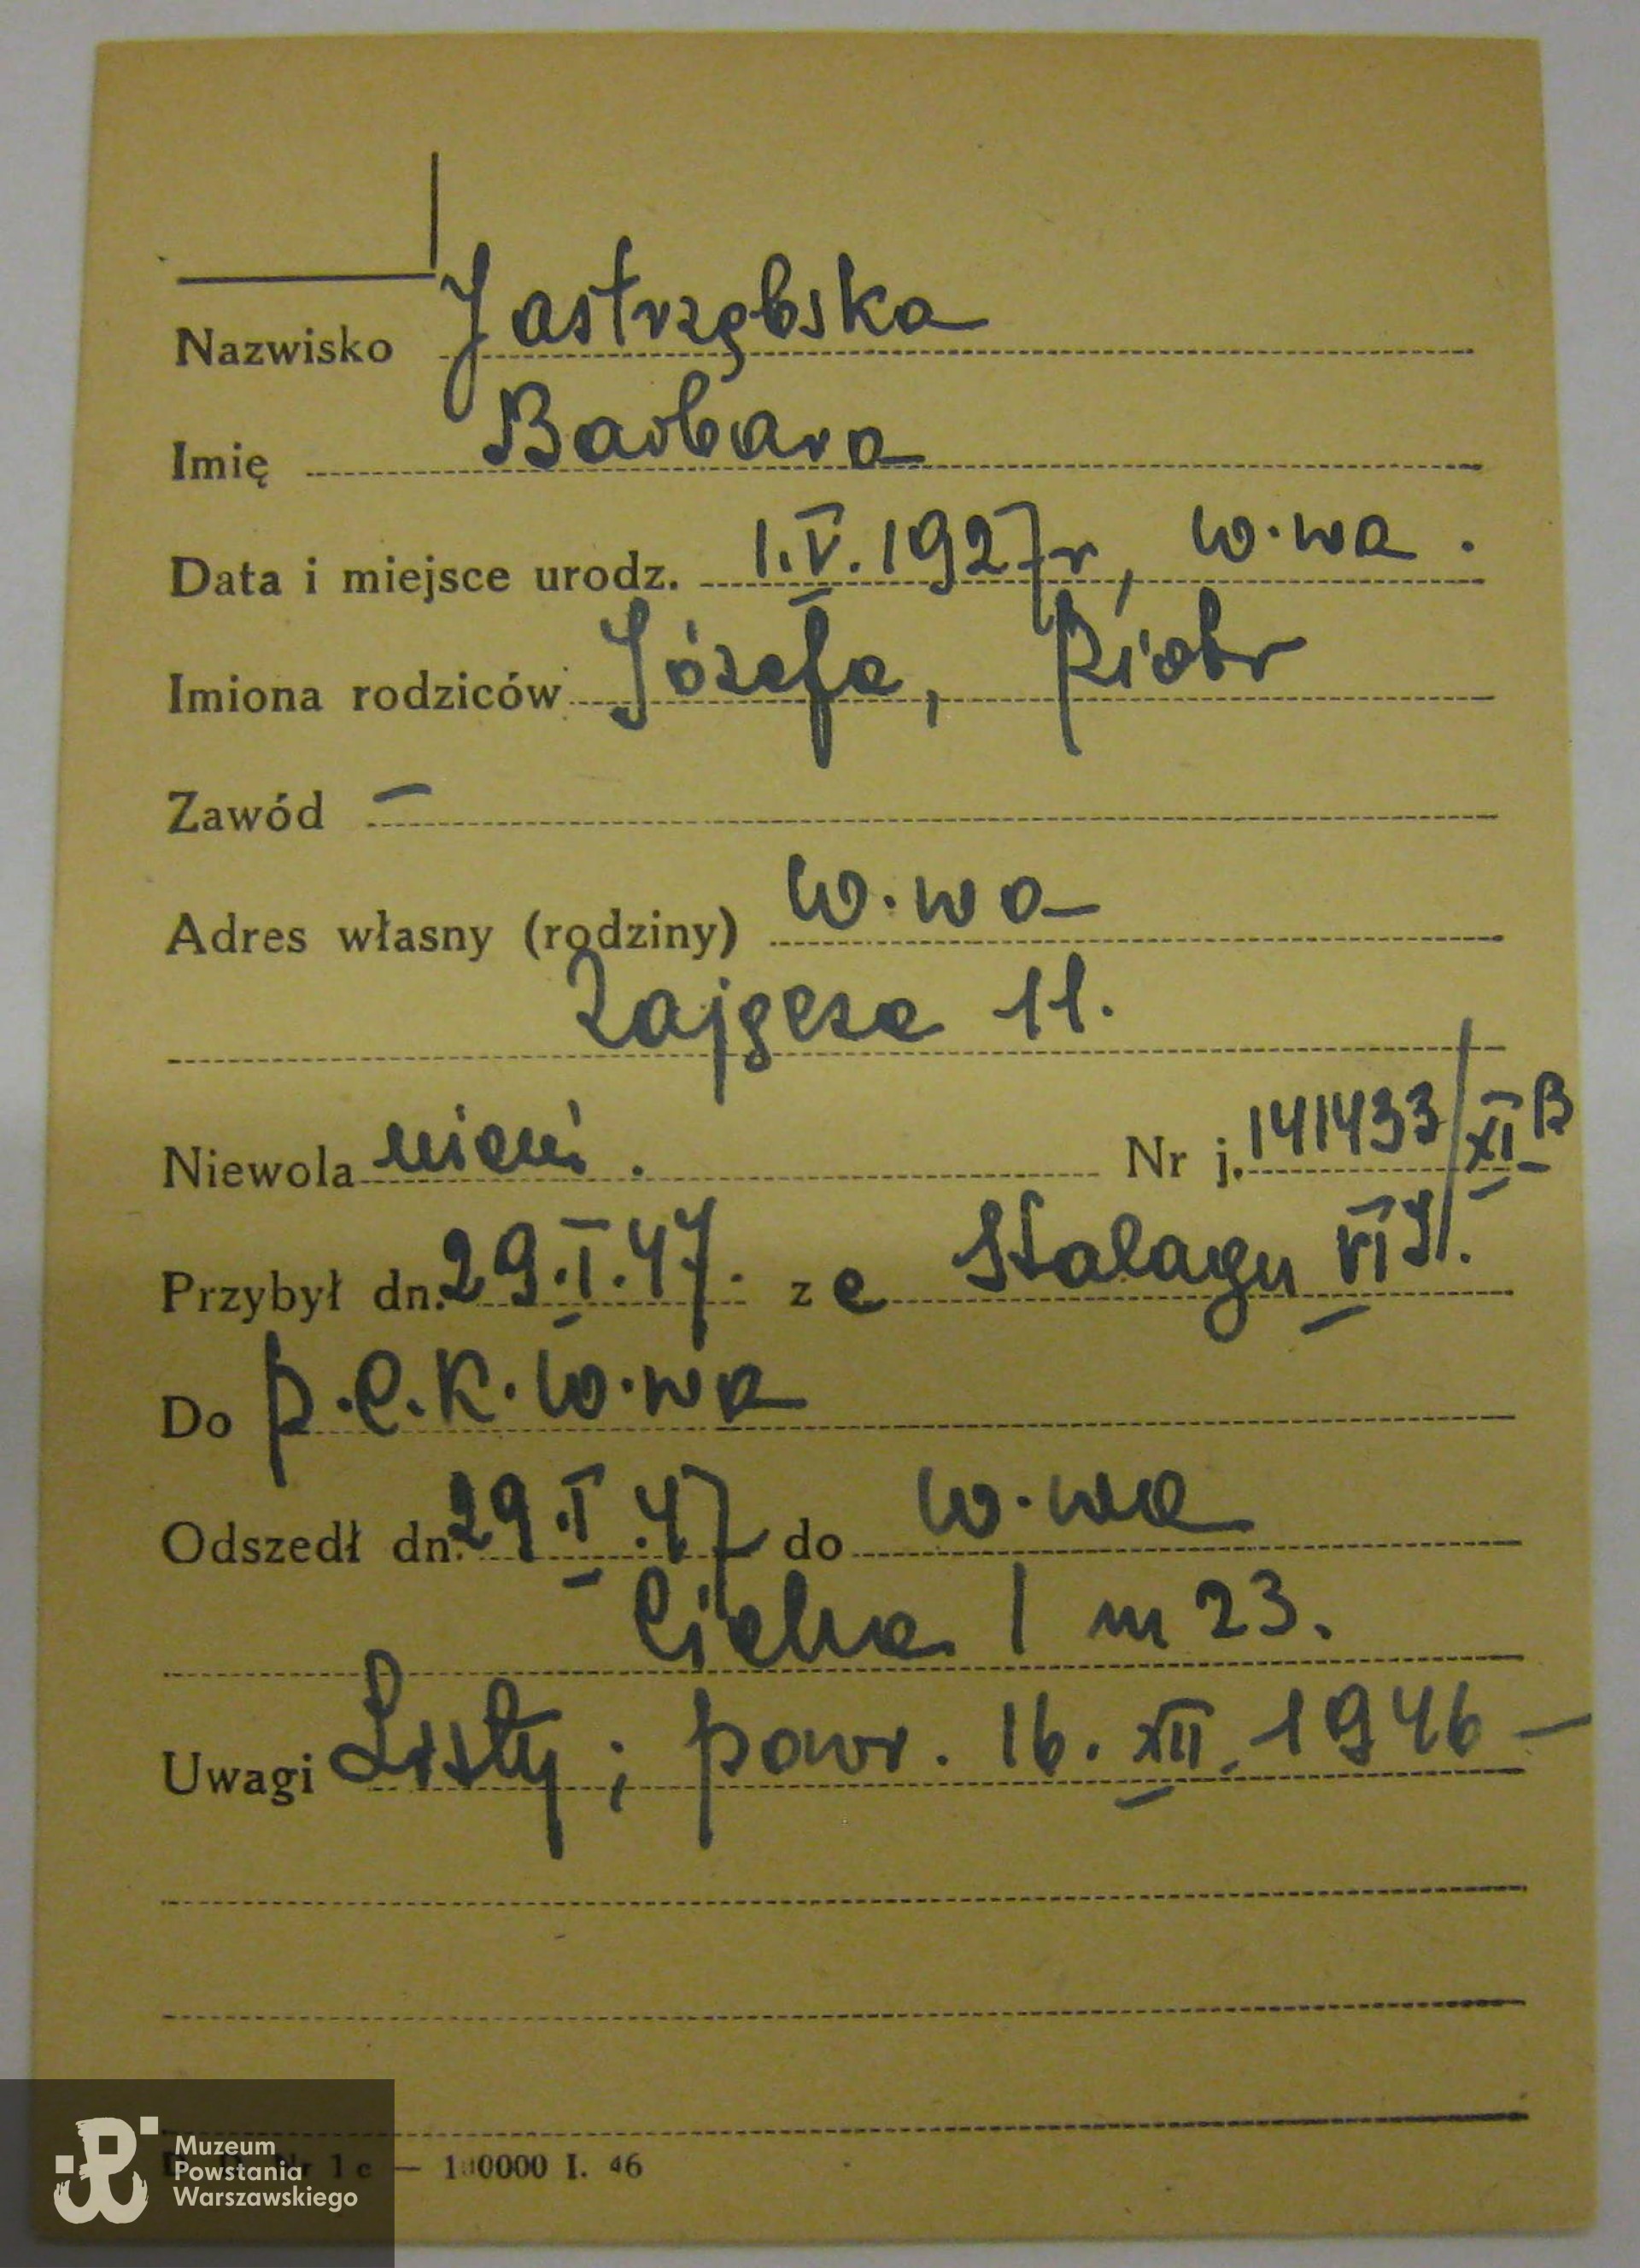 Nazwisko Jastrzębska
Imię Barbara
Data i miejsce urodz. 1.V.1927r, W-wa.
Imiona rodziców Józefa, Piotr
Zawód —
Adres własny (rodziny) W-wa
Zajęcza 11.
Niewola niem. Nr j. 141433/XI B
Przybył dn. 29.I.47. ze Stalagu VI J.
Do p.c.k. W-wa
Odszedł dn. 29.I.47 do W-wa
Cicha 1 m 23.
Uwagi Listy; powr. 16.XII.1946 —
Nr 1 c — 100000 I. 46
Muzeum
Powstania
Warszawskiego